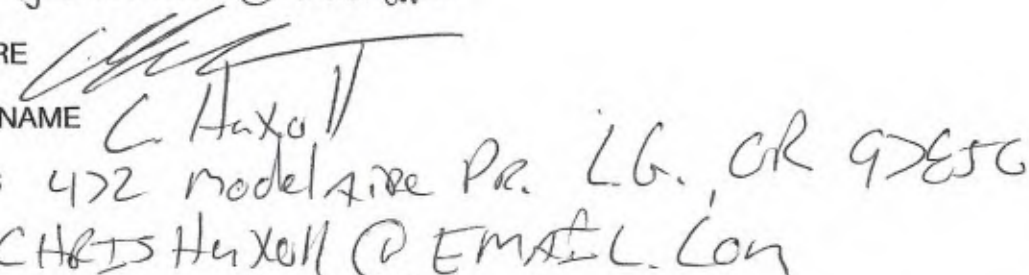 RE
NAME C. Huxoll
472 Modelaire Dr. L.G., OR 97850
CHRISHuxoll@EMAIL.Com